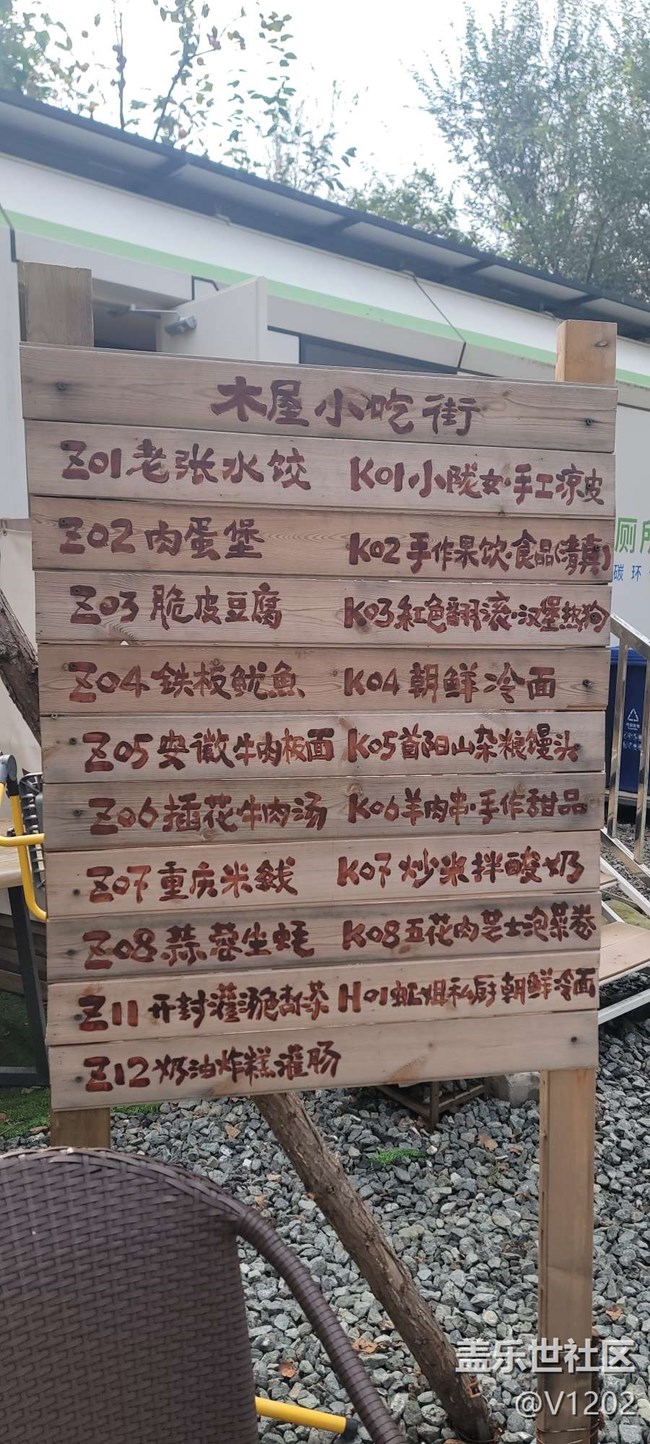 木屋小吃街
Z01老张水饺 K01小陇女·手工凉皮
Z02肉蛋堡 K02手作果饮·食品(清真)
Z03脆皮豆腐 K03红色翻滚·汉堡热狗
Z04铁板鱿鱼 K04朝鲜冷面
Z05安徽牛肉板面 K05首阳山杂粮馒头
Z06插花牛肉汤 K06羊肉串·手作甜品
Z07重庆米线 K07炒米拌酸奶
Z08蒜蓉生蚝 K08五花肉芝士泡菜卷
Z11开封灌汤 H01姐私厨朝鲜冷面
Z12奶油炸糕灌肠
厕所
碳环
盖乐世社区
@V1202